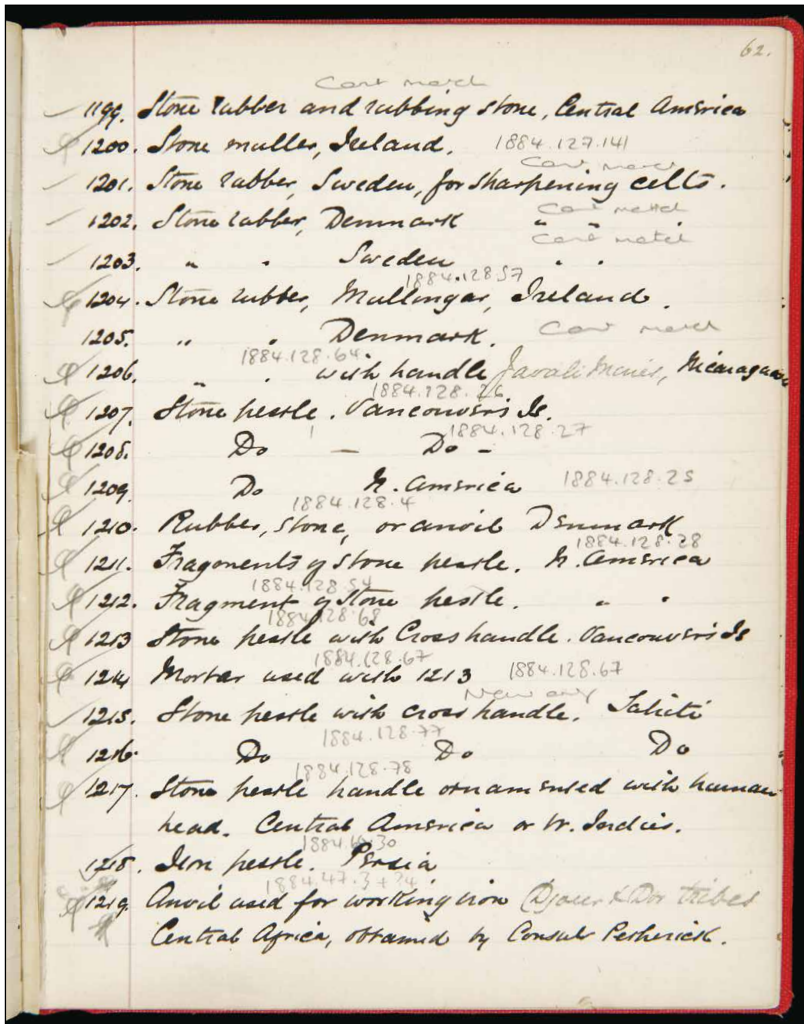 62.
Cant match
1199. Stone rubber and rubbing stone, Central America
1200. Stone muller, Ireland. 1884.127.141
Cant match
1201. Stone rubber, Sweden, for sharpening celts.
Cant match
1202. Stone rubber, Denmark " "
Cant match
1203. " " Sweden " "
1884.128.57
1204. Stone rubber, Mullingar, Ireland.
1205. " " Denmark. Cant match
1884.128.64
1206. " " with handle Javali Mines, Nicaragua
1884.128.26
1207. Stone pestle. Vancouver's Is.
1884.128.27
1208. Do — Do -
1209. Do N. America 1884.128.25
1884.128.4
1210. Rubber, stone, or anvil Denmark
1884.128.28
1211. Fragments of Stone pestle. N. America
1884.128.54
1212. Fragment of Stone pestle. " "
1884.128.68
1213 Stone pestle with Cross handle. Vancouver's Is
1884.128.67
1214 Mortar used with 1213 1884.128.67
New
1215. Stone pestle with cross handle. Tahiti
1884.128.77
1216. Do Do Do
1884.128.78
1217. Stone pestle handle ornamented with human
head. Central America or W. Indies.
1218. Iron pestle. Persia
1884.47.3+74
1219. Anvil used for working iron (Djour & Dor tribes
Central Africa, obtained by Consul Petherick.